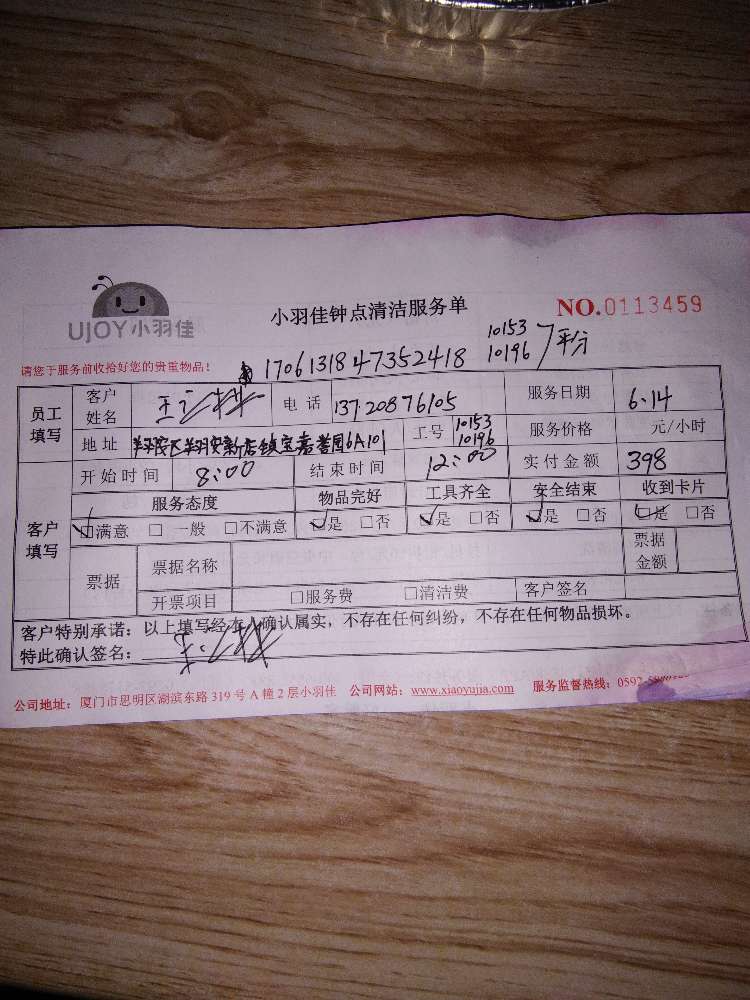 UJOY小羽佳
小羽佳钟点清洁服务单
NO.0113459
请您于服务前收拾好您的贵重物品!
1706131847352418 10153 10196 平分
员工填写
客户姓名 王 电话 13720876105 服务日期 6.14
地址 翔安区翔安新店镇宝嘉誉园6A101 工号 10153 10196 服务价格 元/小时
客户填写
开始时间 8:00 结束时间 12:00 实付金额 398
服务态度 物品完好 工具齐全 安全结束 收到卡片
☑满意 □一般 □不满意 ☑是 □否 ☑是 □否 ☑是 □否 ☑是 □否
票据 票据名称 票据金额
开票项目 □服务费 □清洁费 客户签名
客户特别承诺:以上填写经本人确认属实,不存在任何纠纷,不存在任何物品损坏。
特此确认签名: 王
公司地址:厦门市思明区湖滨东路319号A幢2层小羽佳 公司网站:www.xiaoyujia.com 服务监督热线:0592